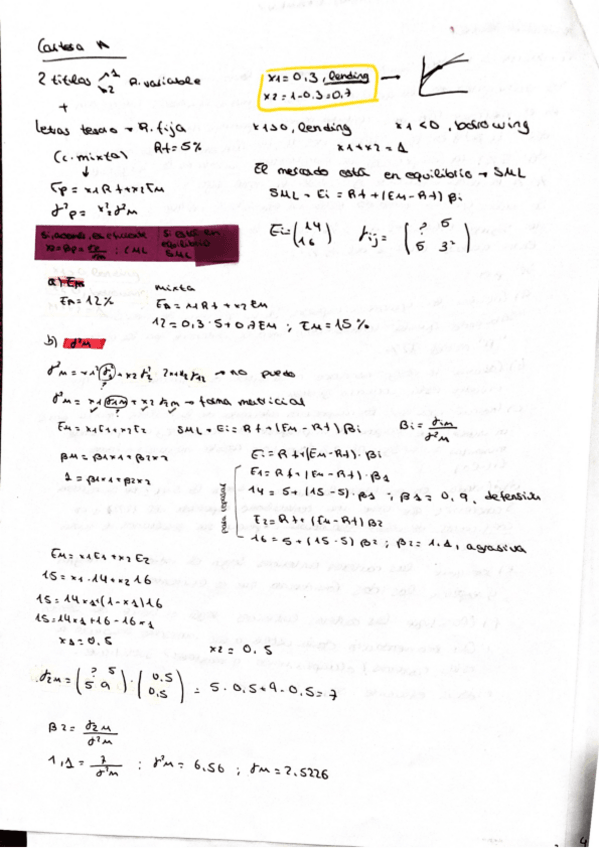 Cartera M
2 titulos 1 2 R. variable
+
Letras tesoro = R. fija
(c. mixta) Rf = 5%
↓
Ep = x1Rf + x2EM
σ²p = x²σ²M
x1 = 0,3, lending
x2 = 1-0,3 = 0,7
x1>0, lending x1<0, borrowing
x1+x2 = 1
El mercado está en equilibrio → SML
SML = Ei = Rf + (EM-Rf) βi
Ei = (14 16) σij = (? 5 5 3²)
CML
Si está en equilibrio SML
a) EM
Ep = 12% mixta
Ep = x1Rf + x2EM
12 = 0,3·5 + 0,7EM ; EM = 15%
b) σ²M
σ²M = x1²σ1² + x2²σ2² 2x1x2σ12 → no puedo
?
σ²M = x1σ1M + x2σ2M → forma matricial
?
EM = x1E1 + x2E2 SML = Ei = Rf + (EM-Rf) βi βi = σiM/σ²M
βM = β1x1 + β2x2
1 = β1x1 + β2x2
Ei = Rf + (EM-Rf)·βi
E1 = Rf + (EM-Rf)·β1
14 = 5 + (15-5)·β1 ; β1 = 0,9, defensiva
E2 = Rf + (EM-Rf) β2
16 = 5 + (15-5) β2 ; β2 = 1,1, agresiva
EM = x1E1 + x2E2
15 = x1·14 + x2 16
15 = 14x1 + (1-x1)16
15 = 14x1 + 16 - 16x1
x1 = 0,5 x2 = 0,5
σ2M = (? 5 5 9)·(0,5 0,5) = 5·0,5 + 9·0,5 = 7
β2 = σ2M/σ²M
1,1 = 7/σ²M ; σ²M = 6,56 ; σM = 2,5226